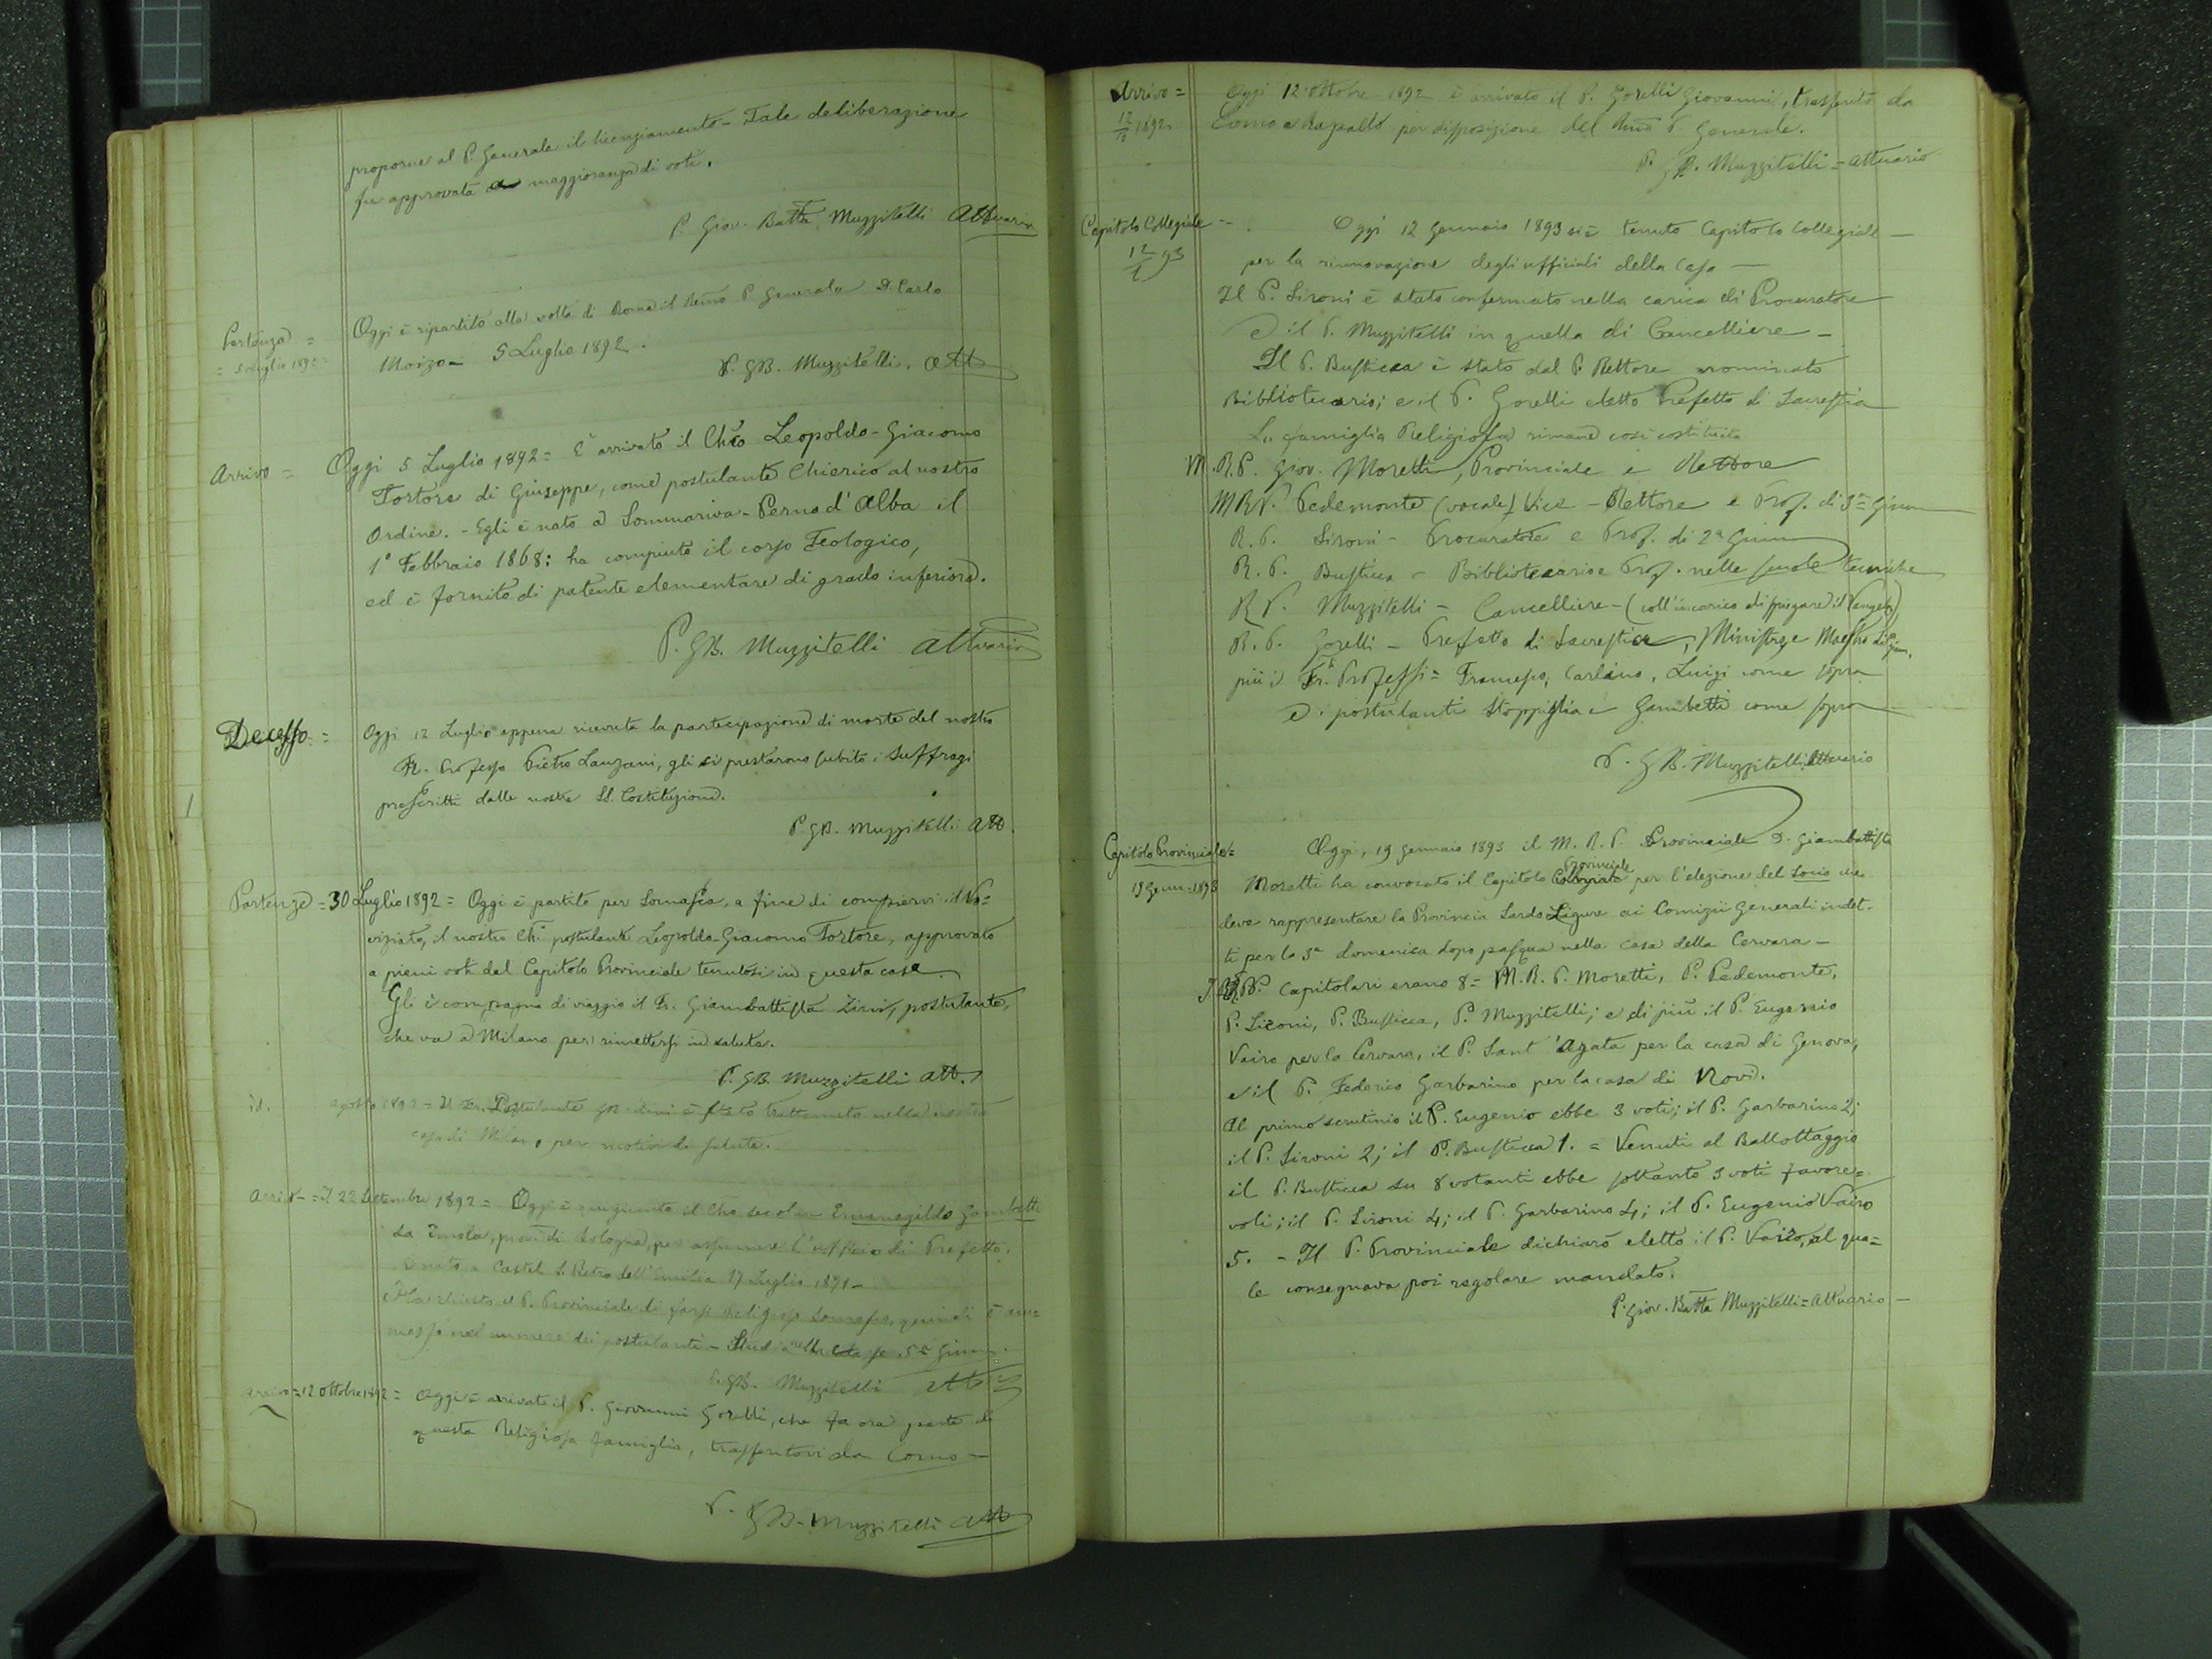 proporne al P. Generale il licenziamento - Tale deliberazione
fu approvata a maggioranza di voti.
P. Giov. Batta Muzzitelli Attuario
Partenza =
= 5 Luglio 1892 =
Oggi è ripartito alla volta di Roma il Remo P. Generale D. Carlo
Moizo - 5 Luglio 1892.
P. GB. Muzzitelli. Att
Arrivo =
Oggi 5 Luglio 1892 = È arrivato il Chco Leopoldo-Giacomo
Tortore di Giuseppe, come postulante Chierico al nostro
Ordine. - Egli è nato a Sommariva-Perno d'Alba il
1° Febbraio 1868: ha compiuto il corso Teologico,
ed è fornito di patente elementare di grado inferiore.
P. GB. Muzzitelli Attuario
Decesso =
Oggi 12 Luglio appena ricevuta la partecipazione di morte del nostro
Fr. Professo Pietro Lanzani, gli si prestarono subito i suffragi
prescritti dalle nostre SS. Costituzioni.
P. GB. Muzzitelli Att.
Partenza = 30 Luglio 1892 = Oggi è partito per Somasca, a fine di compiervi il No=
viziato, il nostro Ch. postulante Leopoldo Giacomo Tortore, approvato
a pieni voti dal Capitolo Provinciale tenutosi in questa casa.
Gli è compagno di viaggio il Fr. Giambattista Zirivi, postulante,
che va a Milano per rimettersi in salute.
P. GB. Muzzitelli Att.
id. agosto 1892 = Il Fr. Postulante è stato trattenuto nella nostra
casa di Milano, per motivi di salute.
Arrivo = Il 22 Settembre 1892 = Oggi è qui giunto il Cho secolare Ermenegildo Gambetti
da Imola, prov. di Bologna, per assumere l'ufficio di Prefetto.
È nato a Castel S. Pietro dell'Emilia 17 Luglio 1871 -
Ha chiesto al P. Provinciale di farsi Religioso Somasco, quindi è am=
messo nel numero dei postulanti - Studia nella classe 5a Ginn.
P. GB. Muzzitelli Att
Arrivo = 12 Ottobre 1892 = Oggi è arrivato il P. Giovanni Gorelli, che fa ora parte di
questa Religiosa famiglia, trasferitovi da Como -
P. GB. Muzzitelli Att
Arrivo =
12/10 1892
Oggi 12 Ottobre 1892 è arrivato il P. Gorelli Giovanni, trasferito da
Como a Rapallo per disposizione del Rmo P. Generale.
P. GB. Muzzitelli = Attuario
Capitolo Collegiale -
12/1 93
Oggi 12 Gennaio 1893 si è tenuto Capitolo Collegiale -
per la rinnovazione degli ufficiali della casa -
Il P. Sironi è stato confermato nella carica di Procuratore
e il P. Muzzitelli in quella di Cancelliere -
Il P. Busticca è stato dal P. Rettore nominato
Bibliotecario; e il P. Gorelli eletto Prefetto di Sacrestia
La famiglia Religiosa rimane così costituita
M. R. P. Giov. Moretti, Provinciale e Rettore
M R P. Pedemonte (vocale) Vice-Rettore e Prof. di 3a Ginn
R. P. Sironi - Procuratore e Prof. di 2a Ginn
R. P. Busticca - Bibliotecario e Prof. nelle scuole tecniche
R P. Muzzitelli - Cancelliere - (coll'incarico di spiegare il Vangelo)
R. P. Gorelli - Prefetto di Sacrestia, Ministro e Maestro di Ginn.
più i Fr. Professi = Francesco, Carlino, Luigi come sopra
e i postulanti Stoppiglia e Gambetti come sopra
P. GB. Muzzitelli Attuario
Capitolo Provinciale =
19 Genn. 1893
Oggi, 19 Gennaio 1893 il M. R. P. Provinciale D. Giambattista
Provinciale
Moretti ha convocato il Capitolo Collegiale per l'elezione del Socio che
deve rappresentare la Provincia Sardo Ligure ai Comizii Generali indet-
ti per la 3a domenica dopo pasqua nella casa della Cervara -
I RR. PP. Capitolari erano 8 = M. R. P. Moretti, P. Pedemonte,
P. Sironi, P. Busticca, P. Muzzitelli; e di più il P. Eugenio
Vairo per la Cervara, il P. Sant'Agata per la casa di Genova,
e il P. Federico Garbarino per la casa di Novi.
Al primo scrutinio il P. Eugenio ebbe 3 voti; il P. Garbarino 2;
il P. Sironi 2; il P. Busticca 1. = Venuti al Ballottaggio
il P. Busticca su 8 votanti ebbe soltanto 3 voti favore=
voli; il P. Sironi 4; il P. Garbarino 4; il P. Eugenio Vairo
5. - Il P. Provinciale dichiarò eletto il P. Vairo, al qua=
le consegnava poi regolare mandato.
P. Giov. Batta Muzzitelli = Attuario -